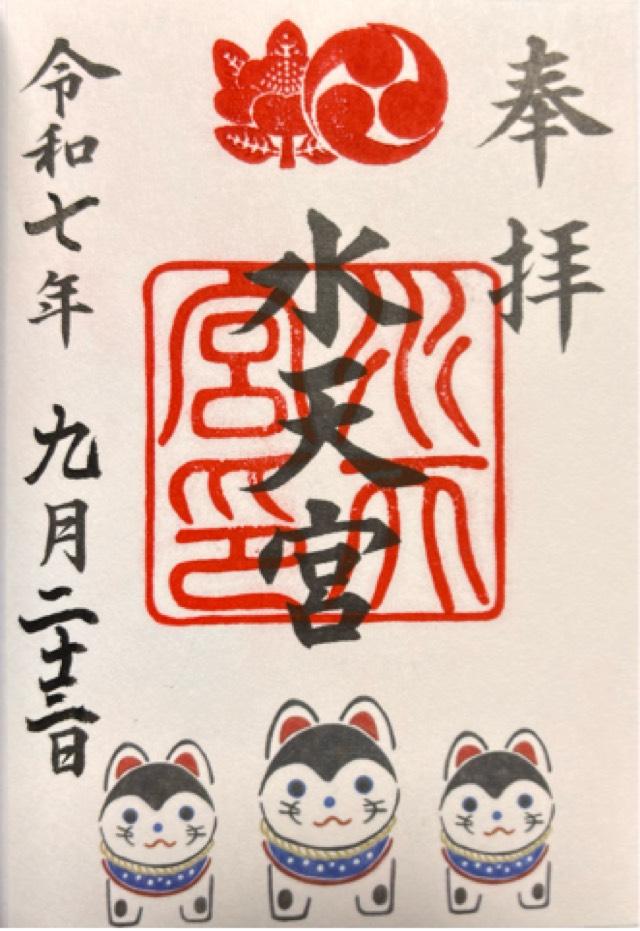 奉拝
水天宮
水天宮印
令和七年九月二十三日